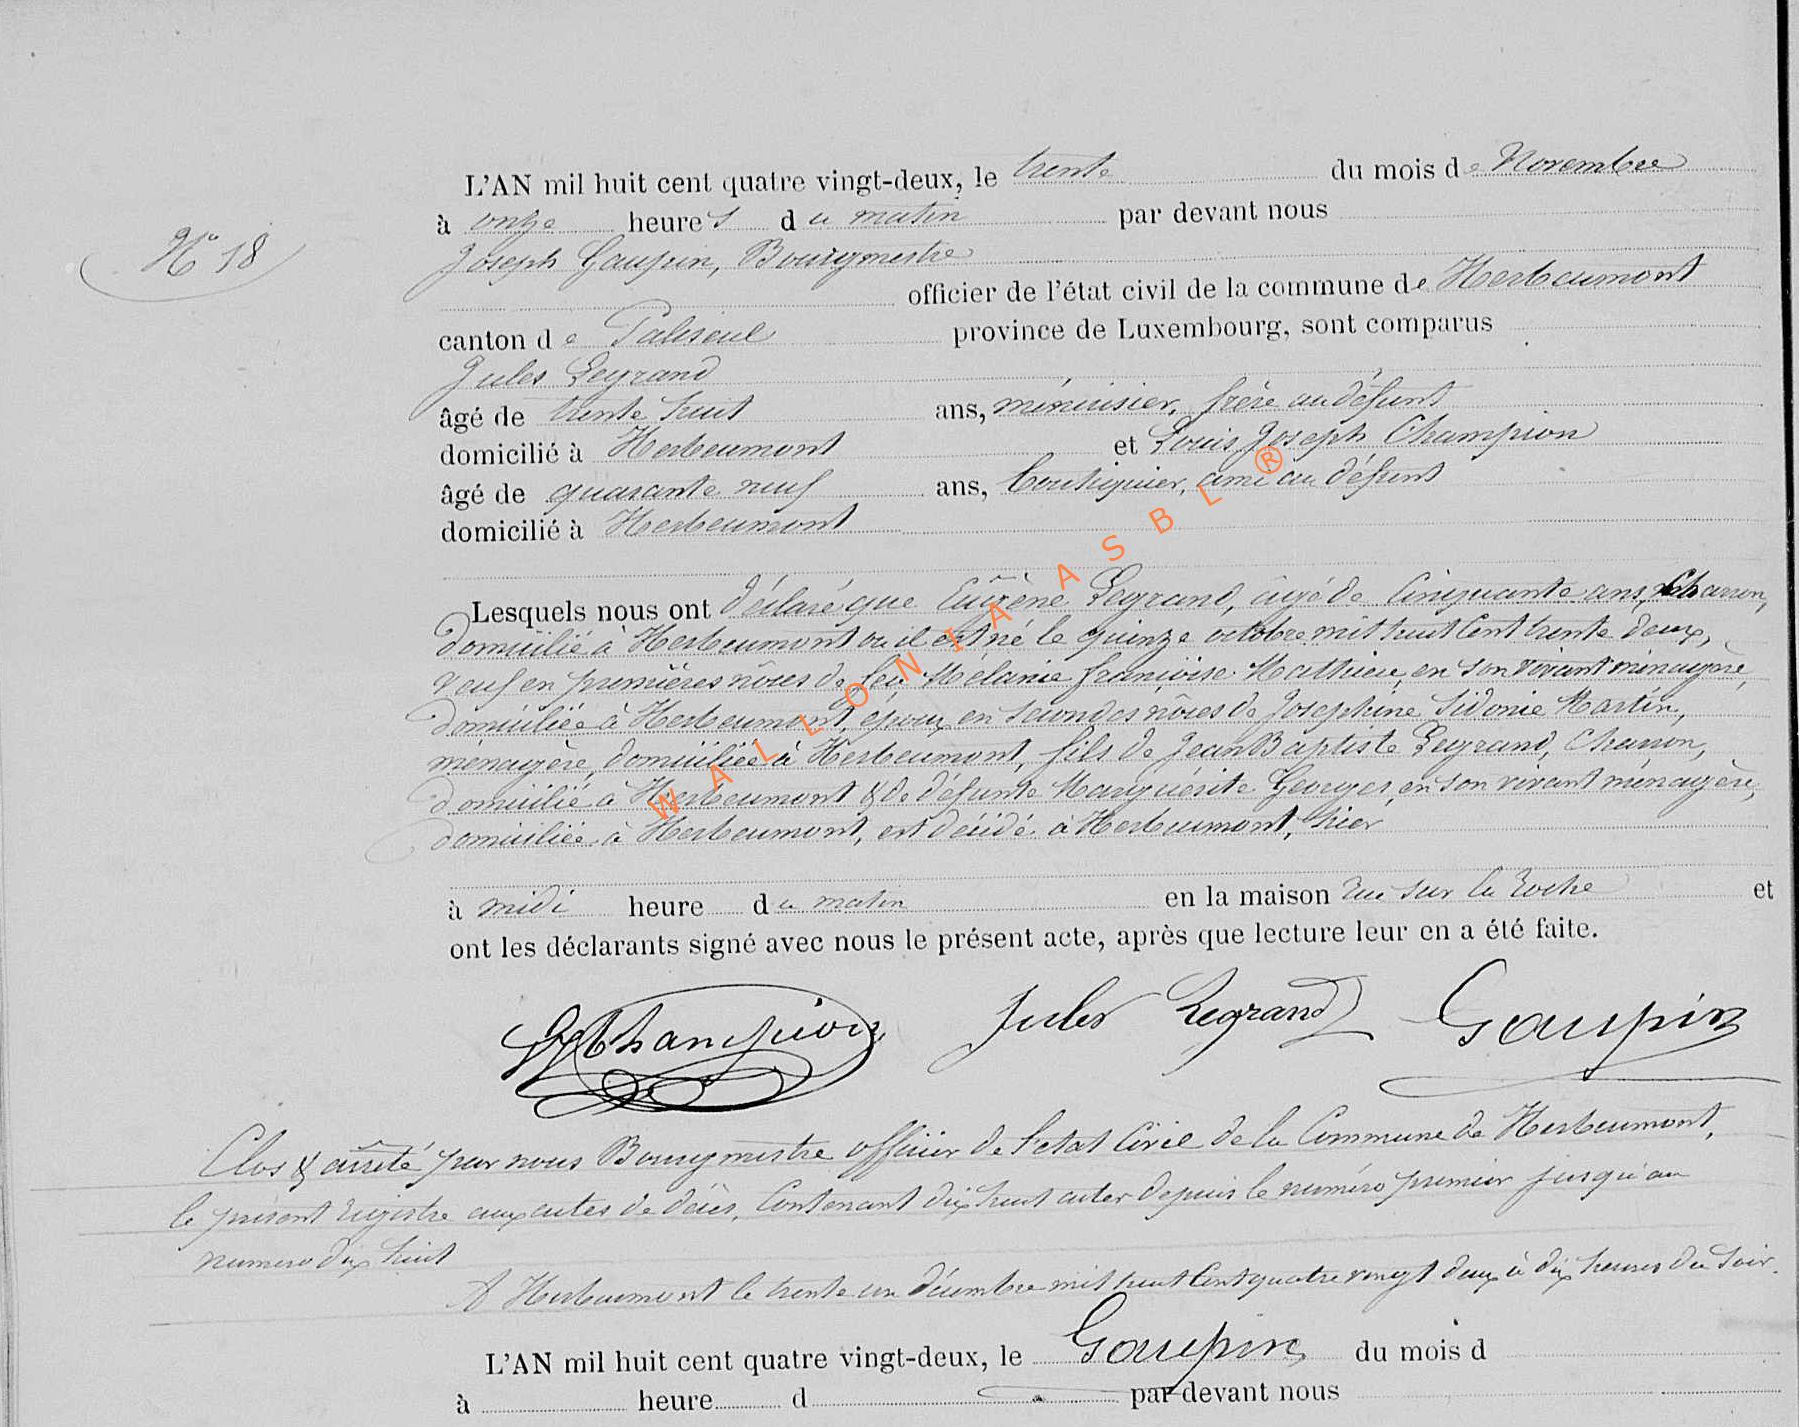 L'AN mil huit cent quatre vingt-deux, le trente du mois de Novembre
à onze heures du matin par devant nous
N° 18
Joseph Gaupin, Bourgmestre
officier de l'état civil de la commune de Herbeumont
canton de Paliseul province de Luxembourg, sont comparus
Jules Legrand
âgé de trente huit ans, ménuisier, frère au défunt
domicilié à Herbeumont et Louis Joseph Champion
âgé de quarante neuf ans, boutiquier, ami au défunt
domicilié à Herbeumont
Lesquels nous ont déclaré que Eugène Legrand, âgé de Cinquante ans, Charron,
domicilié à Herbeumont où il est né le quinze octobre mil huit Cent trente deux,
veuf en premières nôces de feu Mélanie Françoise Mathieu, en son vivant ménagère,
domiciliée à Herbeumont, époux en secondes nôces de Joséphine Sidonie Martin,
ménagère, domiciliée à Herbeumont, fils de Jean Baptiste Legrand, Charron,
domicilié à Herbeumont & de défunte Marguérite Georges, en son vivant ménagère,
domiciliée à Herbeumont, est décédé à Herbeumont, hier
à midi heure du matin en la maison rue sur la Roche et
ont les déclarants signé avec nous le présent acte, après que lecture leur en a été faite.
Champion Jules Legrand Gaupin
Clos & arrêté par nous Bourgmestre officier de l'état Civil de la Commune de Herbeumont,
le présent registre aux actes de décès, Contenant dix huit actes depuis le numéro premier jusqu'au
numero dix huit
A Herbeumont le trente un décembre mil huit Cent quatre vingt deux à dix heures du soir.
Gaupin
L'AN mil huit cent quatre vingt-deux, le du mois d
à heure d par devant nous
WALLONIA ASBL ®